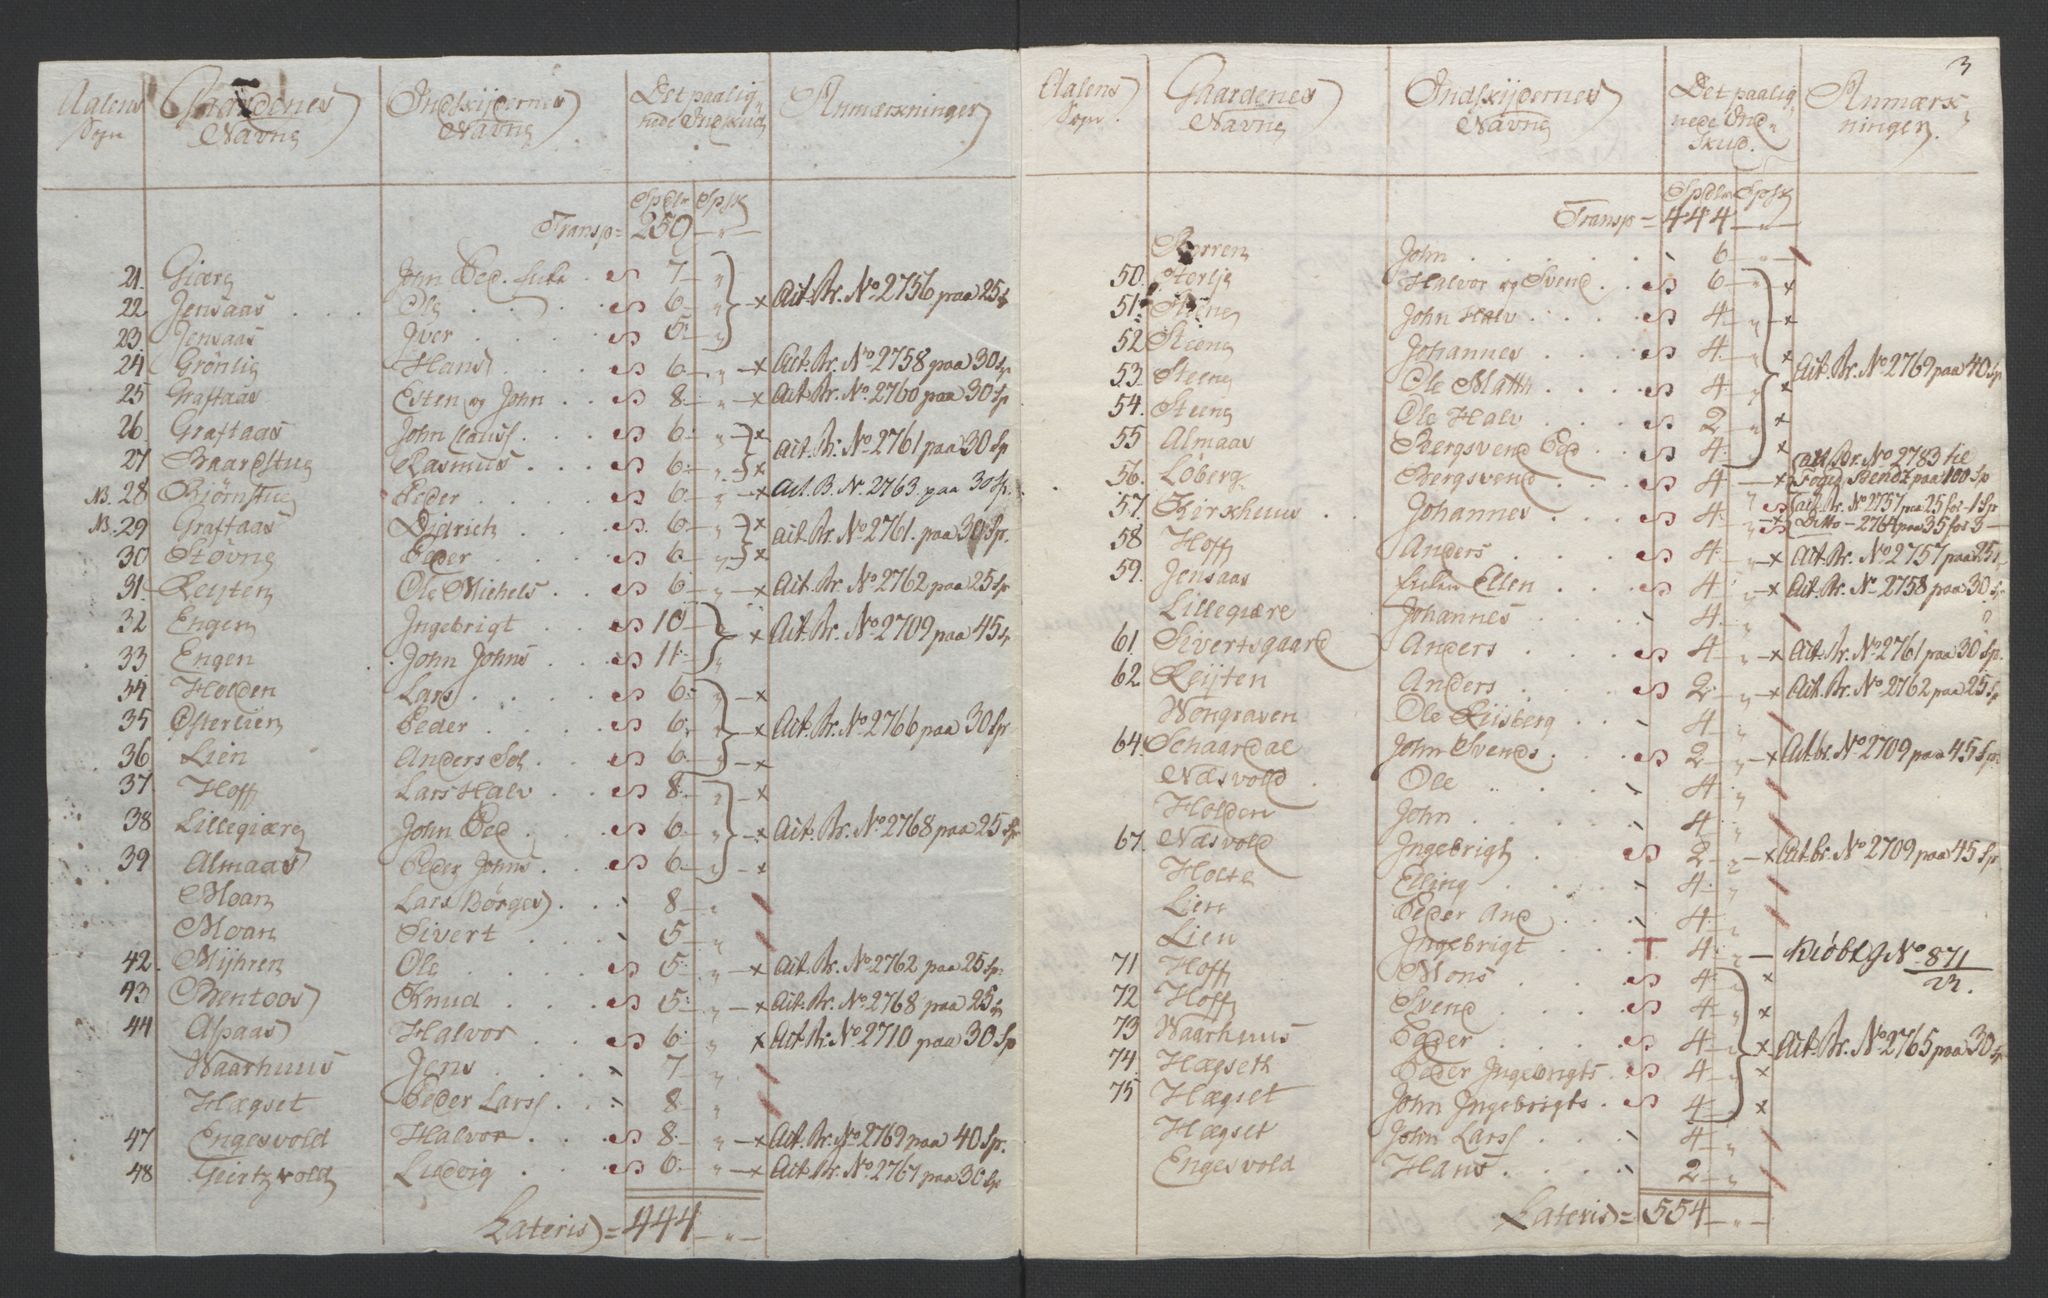 Aalens Sogn | Gaardenes Navne | Indskyldernes Navne | Det paalignede Indskud | Anmærkninger
Spdlr Spsk
Transp = 250 - " -
21. Giære John Ped. Enke S 7 "
22 Jensaas Ole S 6 " x Act. Br. No 2756 paa 25 sp
23. Jensaas Iver S 5 "
24 Grønlie Hans S 6 " x Act. Br. No 2758 paa 30 Sp.
25 Graftaas Esten og John S 8 " x Act. Br. No 2760 paa 30 Sp
26. Graftaas John Clauss. S 6 " x
27 Baardstue Rasmus S 6 " x Act. Br. No 2761 paa 30 Sp
NB. 28 Biørnstue Peder S 6 " x Act. B. No. 2763. paa 30 Sp.
NB. 29 Graftaas Didrich S 6 " x Act. Br. No 2761. paa 30 Sp.
30 Støvne Peder S 6 " x
31 Reijten Ole Michels S 6 " x Act. Br. No 2762 paa 25 Sp
32 Engen Ingebrigt S 10 " x Act. Br. No 2709 paa 45 Sp
33 Engen John Johns S 11 "
34 Holden Lars S 6 " x
35 Østerlien Peder S 6 " x Act. Br. No 2766 paa 30 Sp
36 Lien Anders S 6 " x
37 Hoff Lars Halv S 8 " x
38 Lillegiære John Ped S 6 " x Act. Br. No 2768 paa 25 Sp
39 Almaas Peder Johns S 6 " x
Moan Lars Børges 8 "
Moan Sivert 5 "
42. Mijhren Ole S 5 " x Act. Br. No 2762 paa 25 Sp.
43 Bentoos Knud S 5 " x Act. Br. No 2768 paa 25 Sp
44 Aspaas Halvor S 6 " x Act. Br. No 2710 paa 30 Sp
Waarhuus Jens 7 "
Hægset Peder Larss 8 "
47 Engesvold Halvor S 8 " x Act. Br. No 2769 paa 40 Sp.
48 Geirtzvold Ludvig S 6 " x Act. Br. No 2767 paa 30 Sp
Lateris = 444 - " -
3
Aalens Sogn. | Gaardenes Navne | Indskyldernes Navne | Det paalignede Indskud. | Anmærkninger.
Spdlr Spsk
Transp = 444 - " -
John 6 "
50. Halvor og Svend S 6 " x
51. Steene John Halv S 4 " x
52 Steene Johannes S 4 " x Act. Br. No 2769 paa 40 Sp
53. Steene Ole Matth S 4 "
54. Steene Ole Halv S 2 " x
55 Almaas Bergsvend Ped S 4 " x
56. Løberg Bergsvend S 4 x Act. Br. No 2783 til Foged Bendz paa 100 Sp
57. Kirkhuus Johannes S 4 " x Act. Br. No 2757 paa 25 for 1 Sp
Ditto - 2764 paa 35 for 3 -
58 Hoff Anders S 4 " x Act. Br. No 2757 paa 25 s
59. Jensaas Enken Ellen S 4 " x Act. Br. No 2758 paa 30 Sp
Lillegiære Johannes 4 "
61. Sivertsgaard Anders S 4 " x Act. Br. No 2761 paa 30 Sp.
62. Reijten Anders S 2 " x Act. Br. No 2762 paa 25 Sp
Wongraven Ole Riisberg 4 "
64. Schaardal John Svends S 2 " x Act. br. No 2709 paa 45 Sp.
Næsvold Ole 4 "
Holden John 4 "
67. Næsvold Ingebrigt S 2 " x Act. br. No 2709 paa 45 Sp.
Holte Elling 4 "
Lien Peder And 4 "
Lien Ingebrigt + 4 " - Kiøbt No 871
71 Hoff Mons S 4 " x
72 Hoff Svend S 4 " x
73 Waarhuus Peder S 4 " x Act. Br. No 2765 paa 30 Sp
74. Hægseth Peder Ingebrigts. S 4 " x
75 Hægset John Ingebrigts. S 4 " x
Hægset John Larss 4 "
Engesvold Hans 2 "
Lateris = 554 - " -